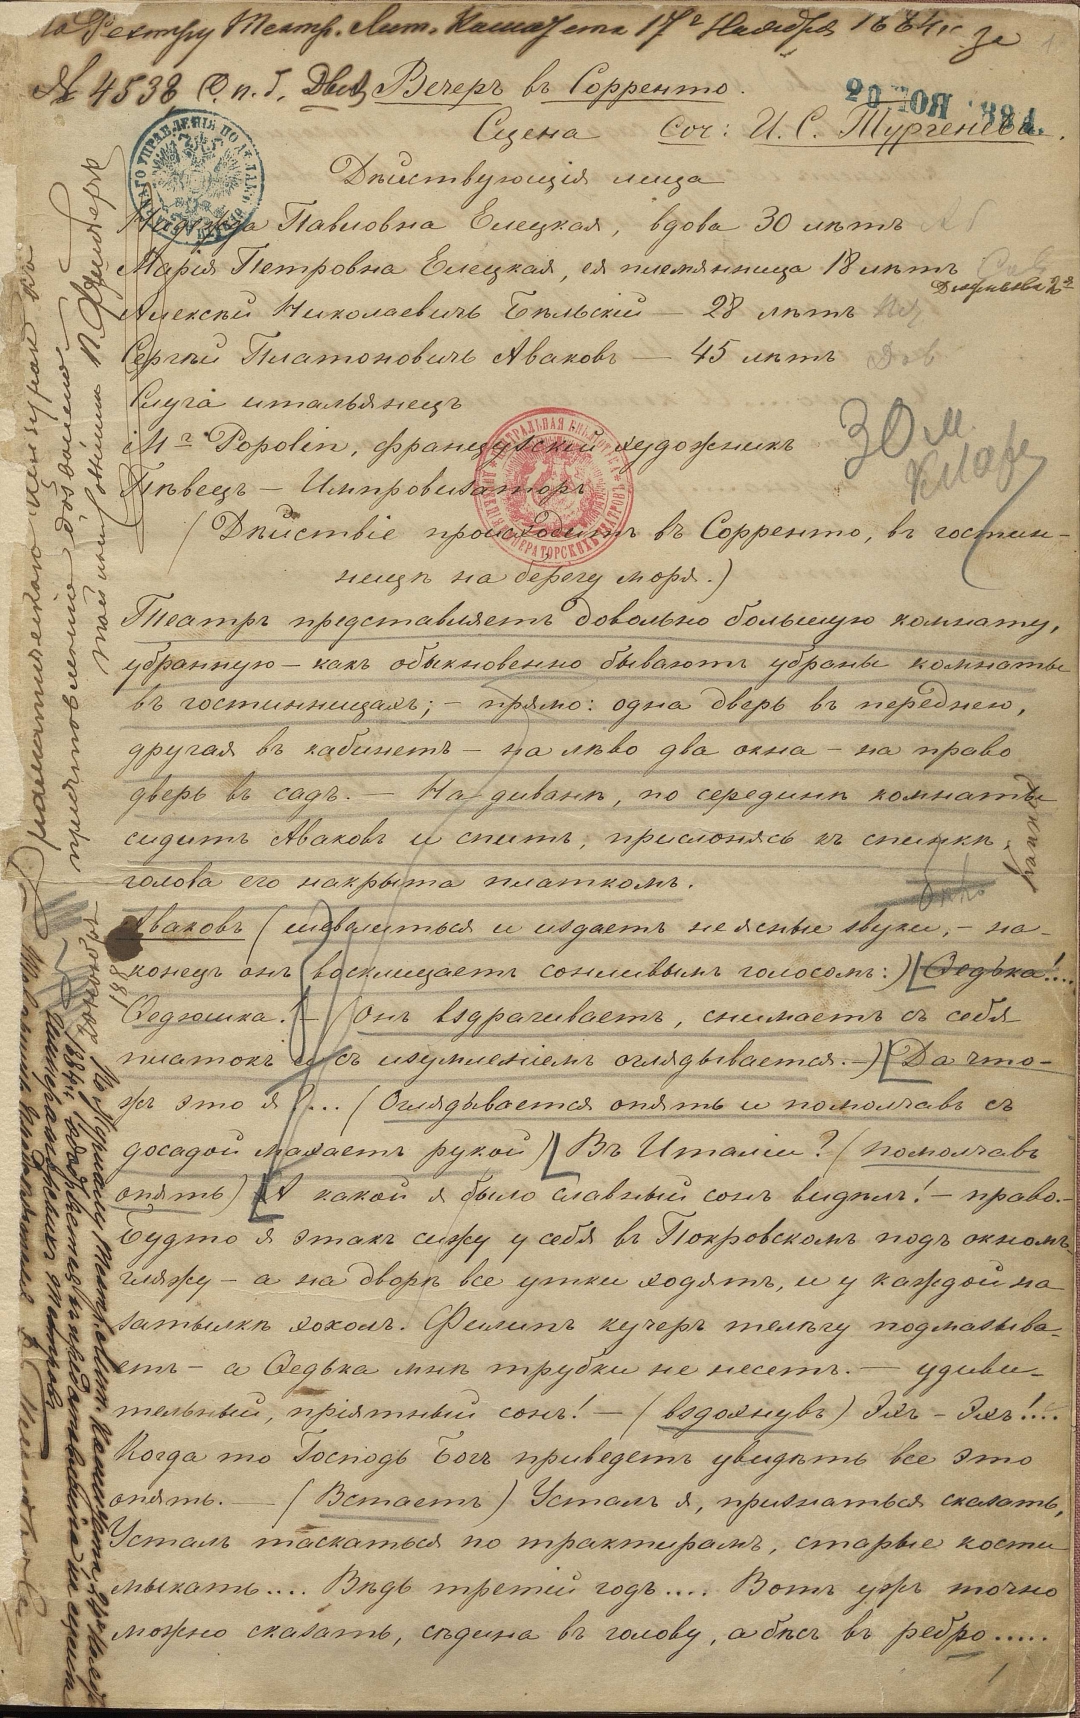 по Реэстру Театр. Лит. Комитета 17го Ноября 1884 г. за
№ 4538
Вечеръ въ Сорренто.
20 НОЯ 1884
Сцена соч: И. С. Тургенева.
Дѣйствующія лица
Надежда Павловна Елецкая, вдова 30 лѣтъ
Марія Петровна Елецкая, ея племянница 18 лѣтъ
Алексѣй Николаевичъ Бѣльскій — 28 лѣтъ
Сергѣй Платоновичъ Аваковъ — 45 лѣтъ
Слуга итальянецъ
Mr Popolin, французскій художникъ
Пѣвецъ — Импровизаторъ
30 м.
(Дѣйствіе происходитъ въ Сорренто, въ гостин-
ницѣ на берегу моря.)
Театръ представляетъ довольно большую комнату,
убранную — какъ обыкновенно бываютъ убраны комнаты
въ гостинницахъ; — прямо: одна дверь въ переднею,
другая въ кабинетъ — на лѣво два окна — на право
дверь въ садъ. — На диванѣ, по серединѣ комнаты
сидитъ Аваковъ и спитъ, прислонясь къ спинкѣ,
голова его накрыта платкомъ.
Аваковъ (шевелиться и издаетъ неясные звуки, — на-
конецъ онъ восклицаетъ сонливымъ голосомъ:) Ѳедька!...
Ѳедюшка! — (Онъ вздрагиваетъ, снимаетъ съ себя
платокъ и съ изумленіемъ оглядывается. —) Да что-
жъ это я?... (Оглядывается опять и помолчавъ съ
досадой махаетъ рукой) Въ Италіи? (помолчавъ
опять) А какой я было славный сонъ видѣлъ! — право. —
Будто я этакъ сижу у себя въ Покровскомъ подъ окномъ,
гляжу — а на дворѣ все утки ходятъ, и у каждой на
затылкѣ хохолъ. Филипъ кучеръ телѣгу подмазыва-
етъ — а Ѳедька мнѣ трубки не несетъ. — удиви-
тельный, пріятный сонъ! — (вздохнувъ) Эхъ — Эхъ!....
Когда то Господь Богъ приведетъ увидѣть все это
опять. — (Встаетъ) Усталъ я, признаться сказать,
Усталъ таскаться по трактирамъ, старые кости
мыкать.... Вѣдь третій годъ.... Вотъ ужъ точно
можно сказать, сѣдина въ голову, а бѣсъ въ ребро.....
1